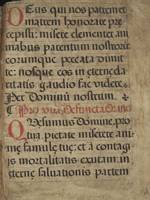 Deus qui nos patrem et
matrem honorare pre
cepisti: misere clementer ani
mabus parentum nostror
eorumque peccata dimit
te: nosque eos in eterne da
ritatis gaudio fac videre
Per Dominum nostrum.
Pro una defuncta Oratio
Quesumus Domine, pro
tua pietate miserere ani
me famule tue: et a contagi
is mortalitatis exutam: in
eterne salvationis partem